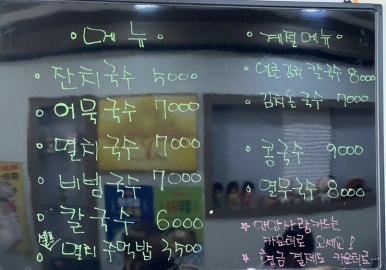 메뉴
잔치국수 5000
어묵국수 7000
멸치국수 7000
비빔국수 7000
칼국수 6000
멸치 주먹밥 3,500
계절메뉴
얼큰 김치 칼국수 8000
김치 국수 7000
콩국수 9000
열무국수 8000
카운터로 오세요!
현금 결제도 카운터로...